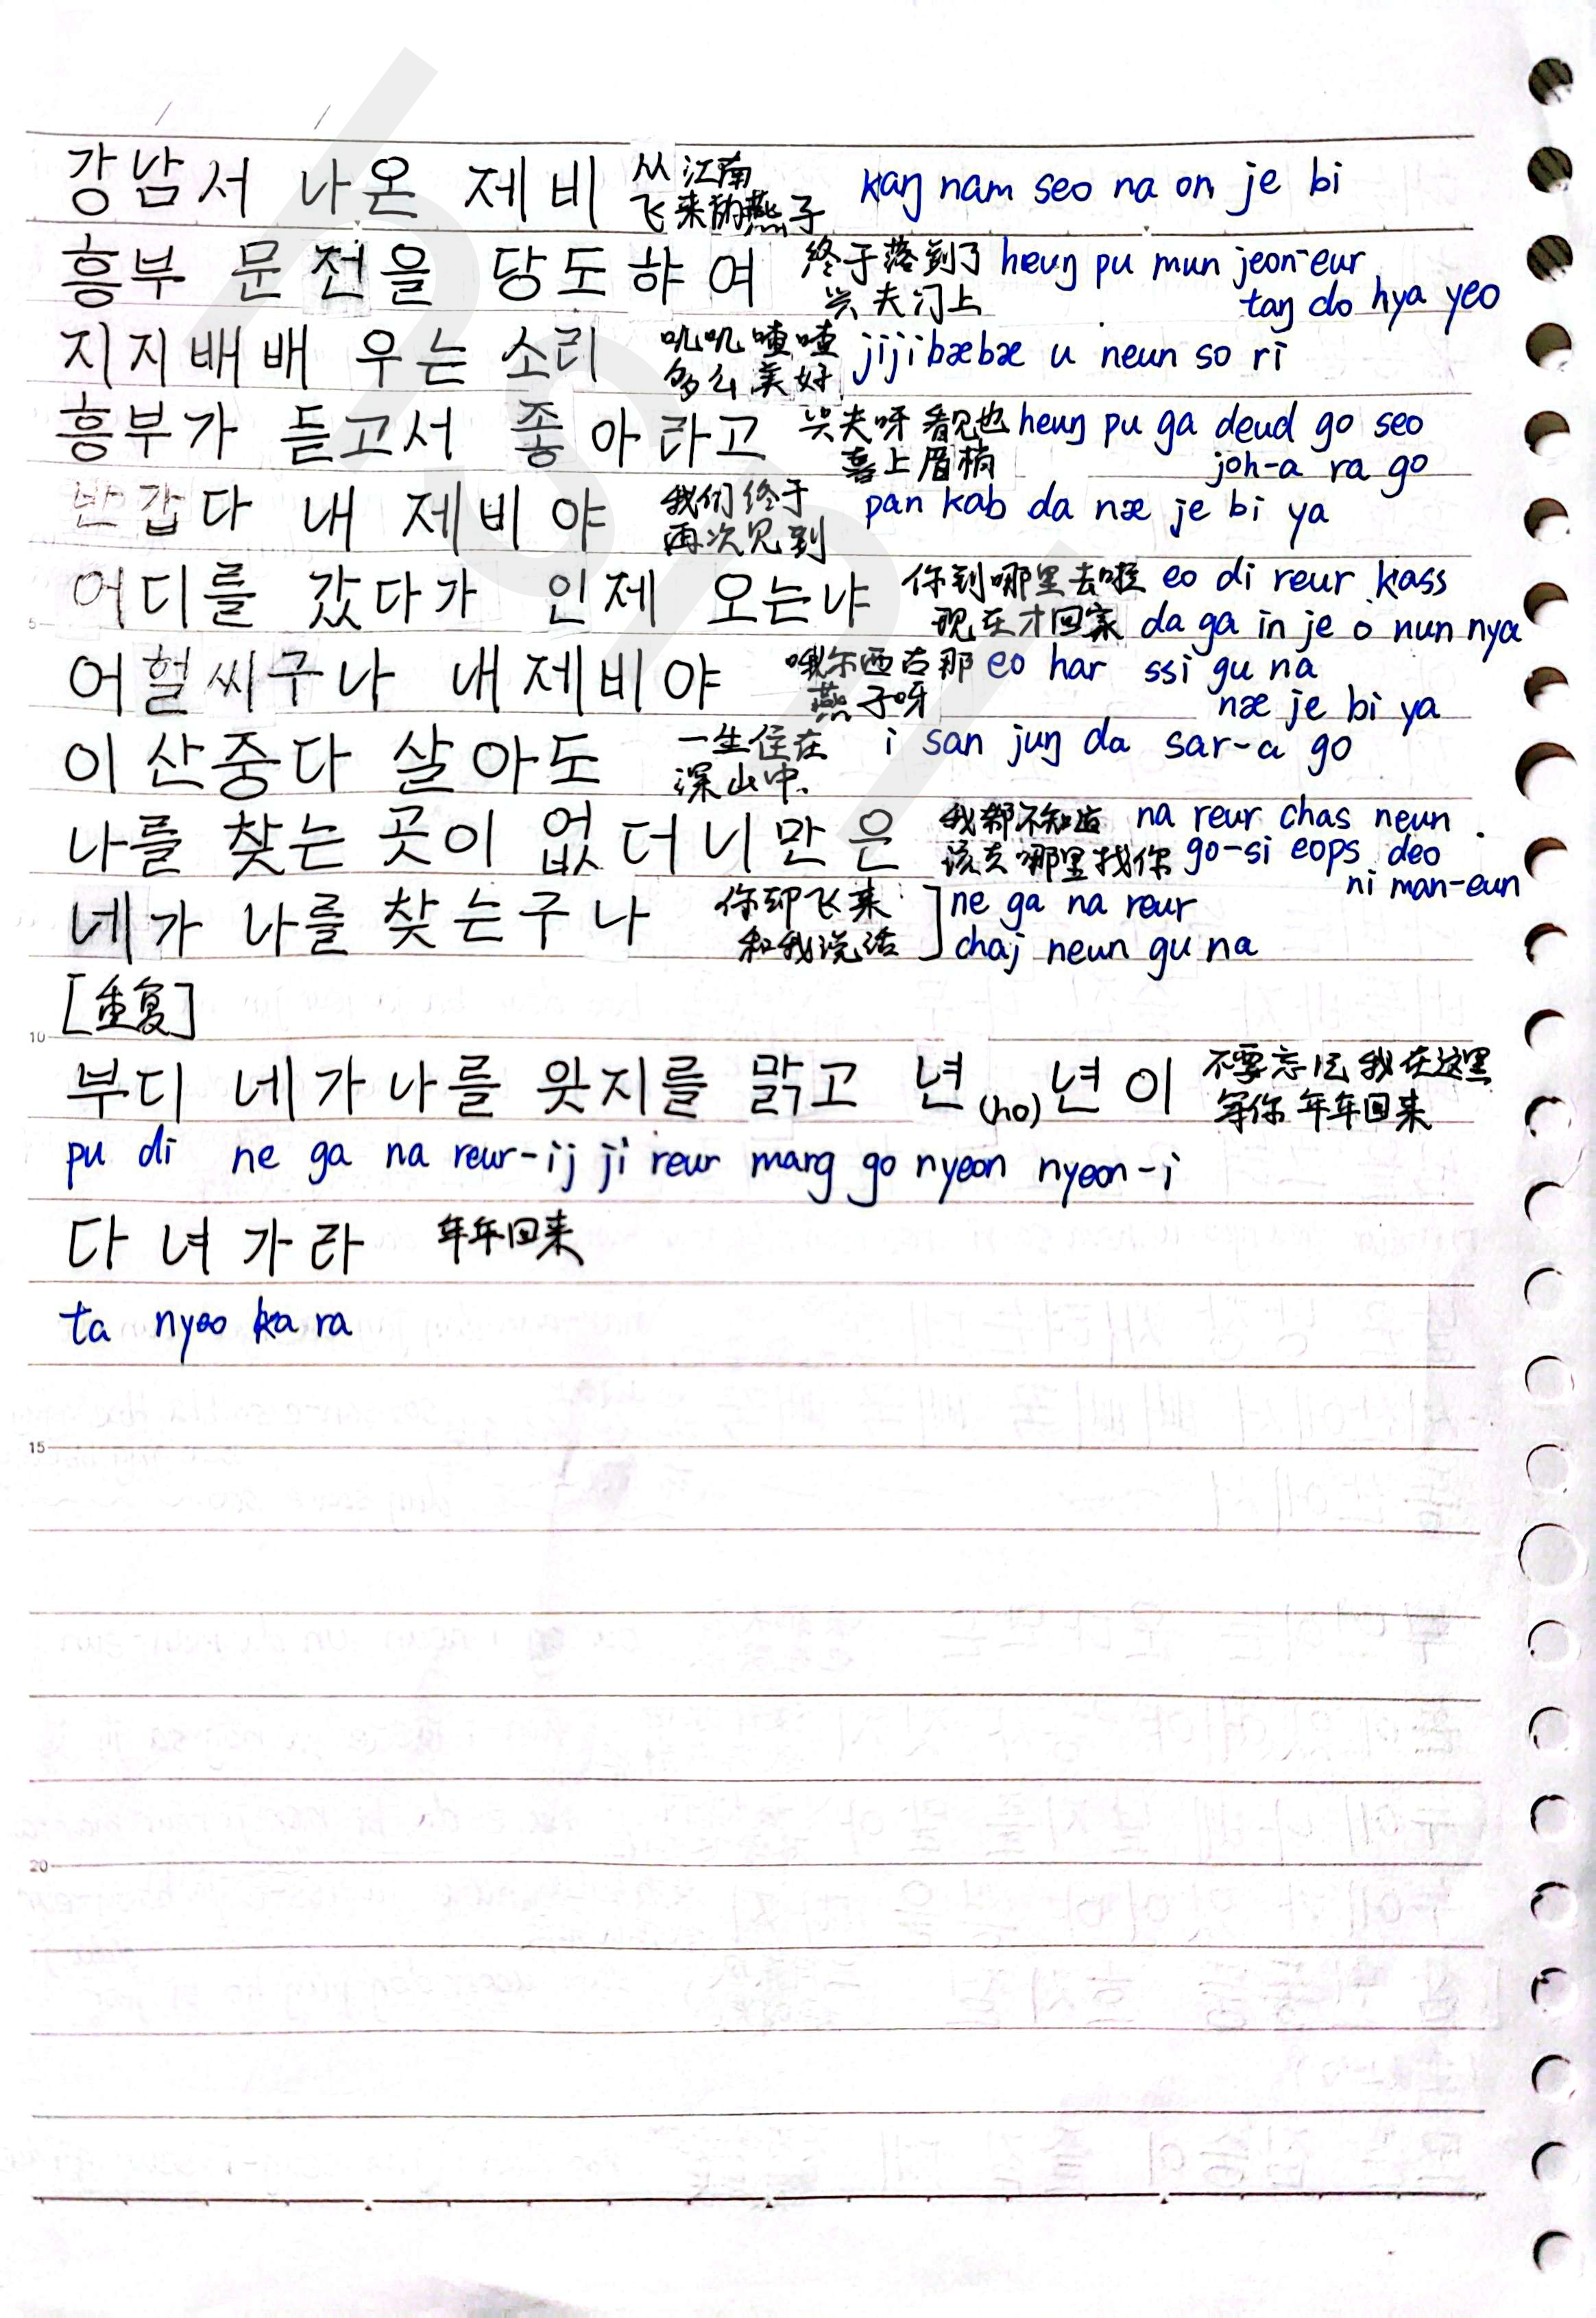 강남서 나온 제비 从江南 kaŋ nam seo na on je bi
飞来的燕子
흥부 문전을 당도햐여 终于落到了 heuŋ pu mun jeon-eur
兴夫门上 taŋ do hya yeo
지지배배 우는 소리 叽叽喳喳 jijibæbæ u neun so ri
多么美好
흥부가 듣고서 좋아라고 兴夫呀看见也 heuŋ pu ga deud go seo
喜上眉梢 joh-a ra go
반갑다 내 제비야 我们终于 pan kab da næ je bi ya
再次见到
어디를 갔다가 인제 오는냐 你到哪里去啦 eo di reur kass
现在才回家 da ga in je o nun nya
어헐씨구나 내 제비야 哦尔西古那 eo har ssi gu na
燕子呀 næ je bi ya
이산중다 살아도 一生住在 i san juŋ da sar-a go
深山中.
나를 찾는 곳이 없더니만은 我都不知道 na reur chas neun
该去哪里找你 go-si eops deo
ni man-eun
네가 나를 찾는구나 你却飞来 ne ga na reur
和我说话 chaj neun gu na
[重复]
부디 네가 나를 잊지를 맑고 년(no)년이 不要忘记我在这里
等你年年回来
pu di ne ga na reur-ij ji reur marg go nyeon nyeon-i
다녀가라 年年回来
ta nyeo ka ra
5
10
15
20